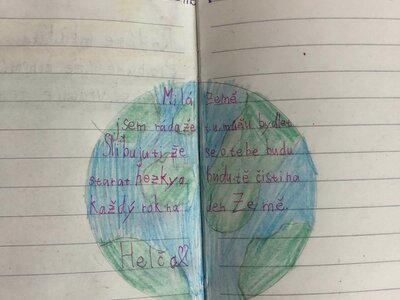 Milá Země
jsem ráda že tu můžu bydlet
Slibuju ti, že se o tebe budu
starat hezky a budu tě čistit na
každý rok na den Země.
Helča